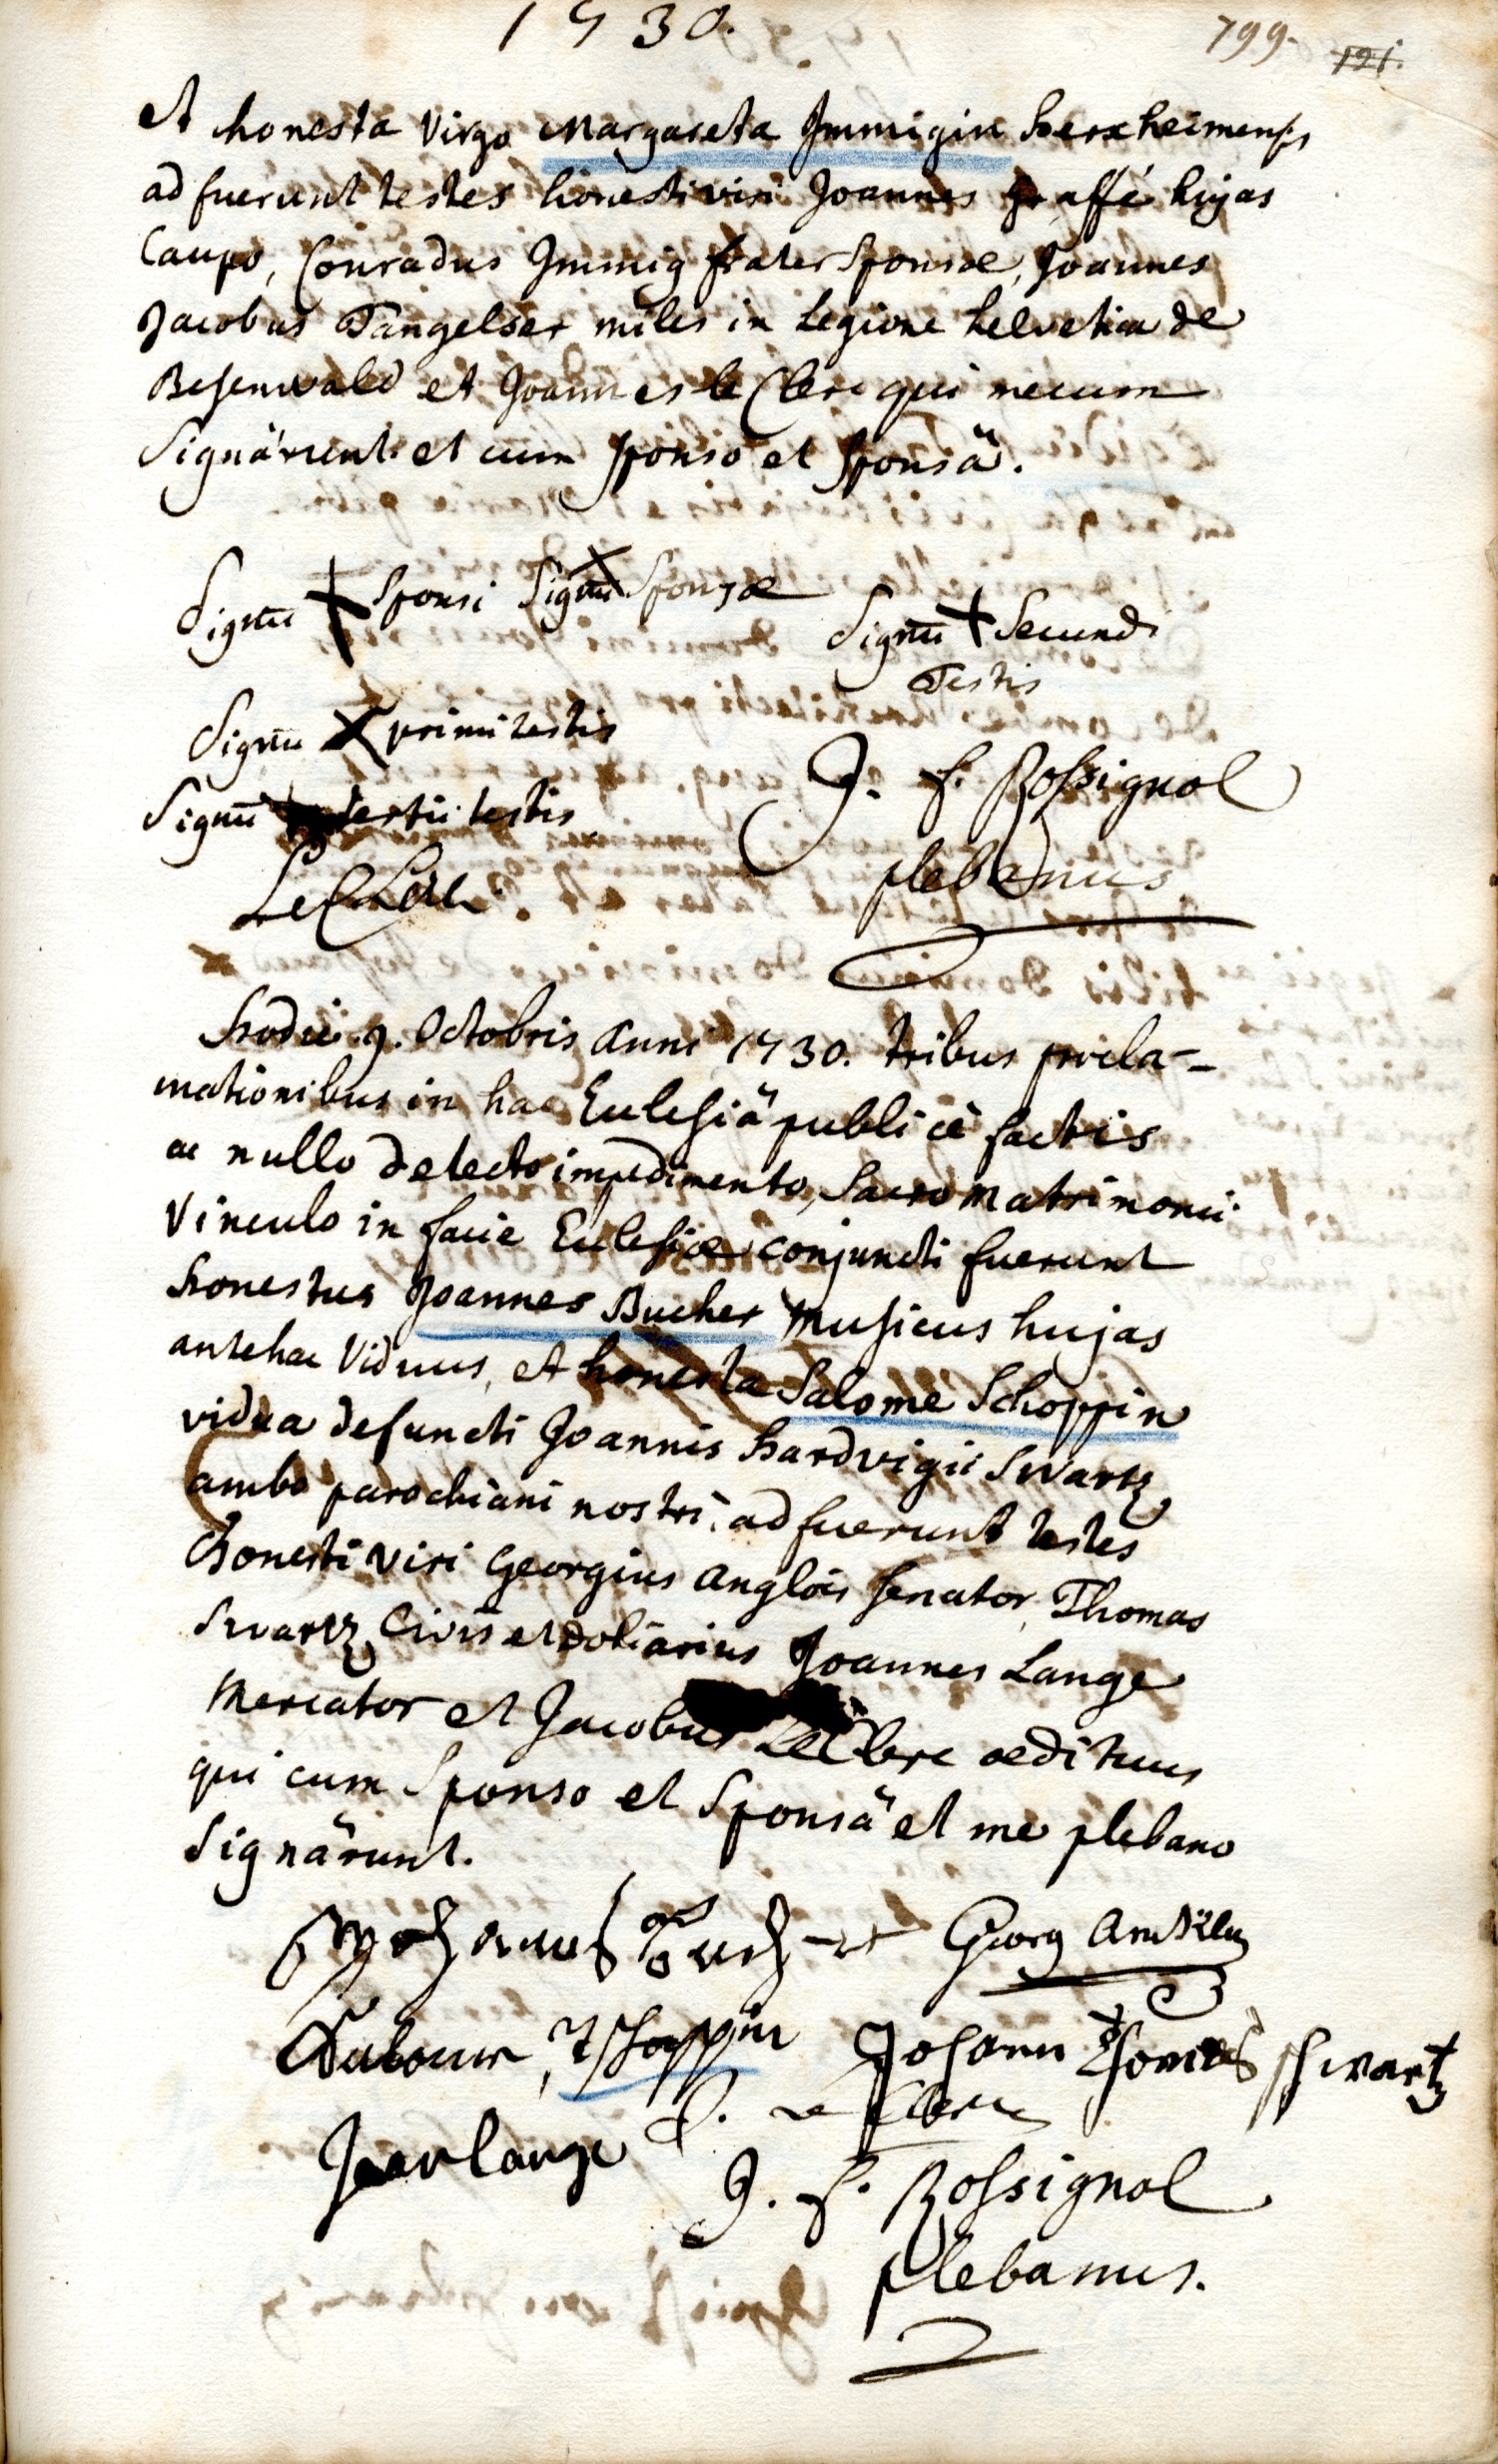 1730.
799. 121.
et honesta Virgo Margareta Immigin Herxheimensis
adfuerunt testes honesti viri Joannes Graffé hujas
Caupo, Conradus Immig frater Sponsæ, Joannes
Jacobus Tangelser miles in Legione helvetica de
Besenwald et Joannes le Clerc qui mecum
Signârunt et cum sponso et sponsâ.
Signu̅ + Sponsi Signu̅ + Sponsæ
Signu̅ + Secundi
Testis
Signu̅ X primi testis
Signu̅ tertii testis
J. f. Rossignol
plebanus
Le Clerc
Hodie 9. Octobris anni 1730. tribus procla-
mationibus in hac Ecclesiâ publicè factis
ac nullo detecto impedimento, Sacro Matrimonii
Vinculo in facie Ecclesiæ conjuncti fuerunt
honestus Joannes Bucher Musicus hujas
antehac Viduus, et honesta Salome Schoppin
vidua defuncti Joannis Hardvigii Swartz
ambo parochiani nostri, adfuerunt testes
honesti viri Georgius Anglois senator, Thomas
Swartz Civis et doliarius Joannes Lange
Mercator et Jacobus Le Clerc ædituus
qui cum Sponso et Sponsâ et me plebano
Signârunt.
Georg
Johann Thomas schwartz
J. le Clerc
lange
J. f. Rossignol
plebanus.